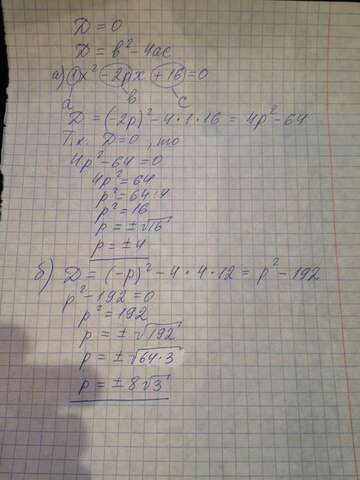 D = 0
D = b² - 4ac
а) 1x² - 2px + 16 = 0
a b c
D = (-2p)² - 4 · 1 · 16 = 4p² - 64
Т.к. D = 0, то
4p² - 64 = 0
4p² = 64
p² = 64 : 4
p² = 16
p = ± √16
p = ± 4
б) D = (-p)² - 4 · 4 · 12 = p² - 192
p² - 192 = 0
p² = 192
p = ± √192
p = ± √64·3
p = ± 8√3